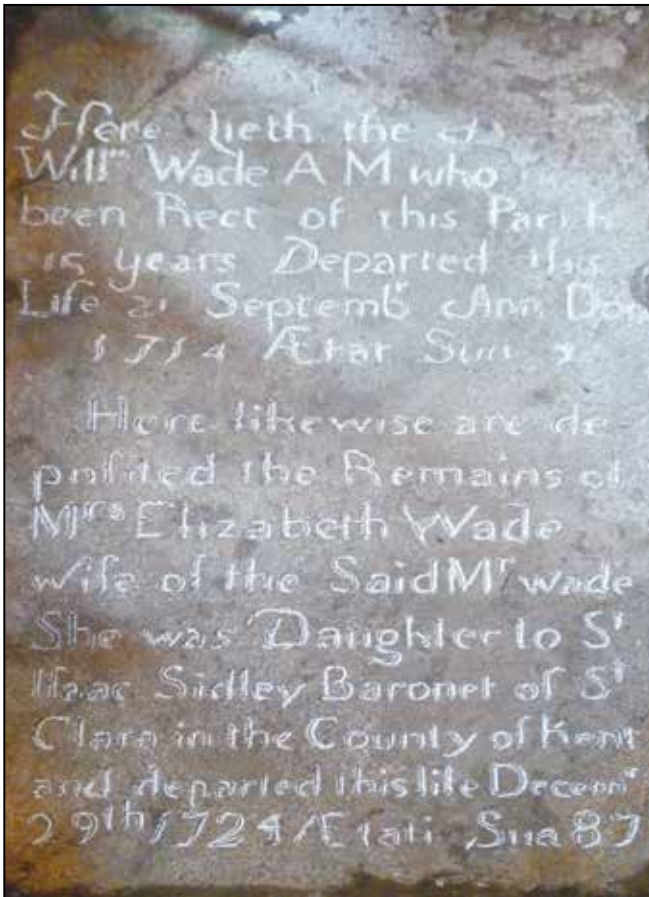 Here lieth the
Will^m Wade A M who
been Rect of this Parish
15 years Departed this
Life 21 Septemb^r Ann Dom
1714 Ætat Suæ
Here likewise are de
posited the Remains of
M^rs Elizabeth Wade
wife of the Said M^r wade
She was Daughter to S^r
Isaac Sidley Baronet of S^t
Clare in the County of Kent
and departed this life Decem^r
29th 1724 Ætati Sua 87